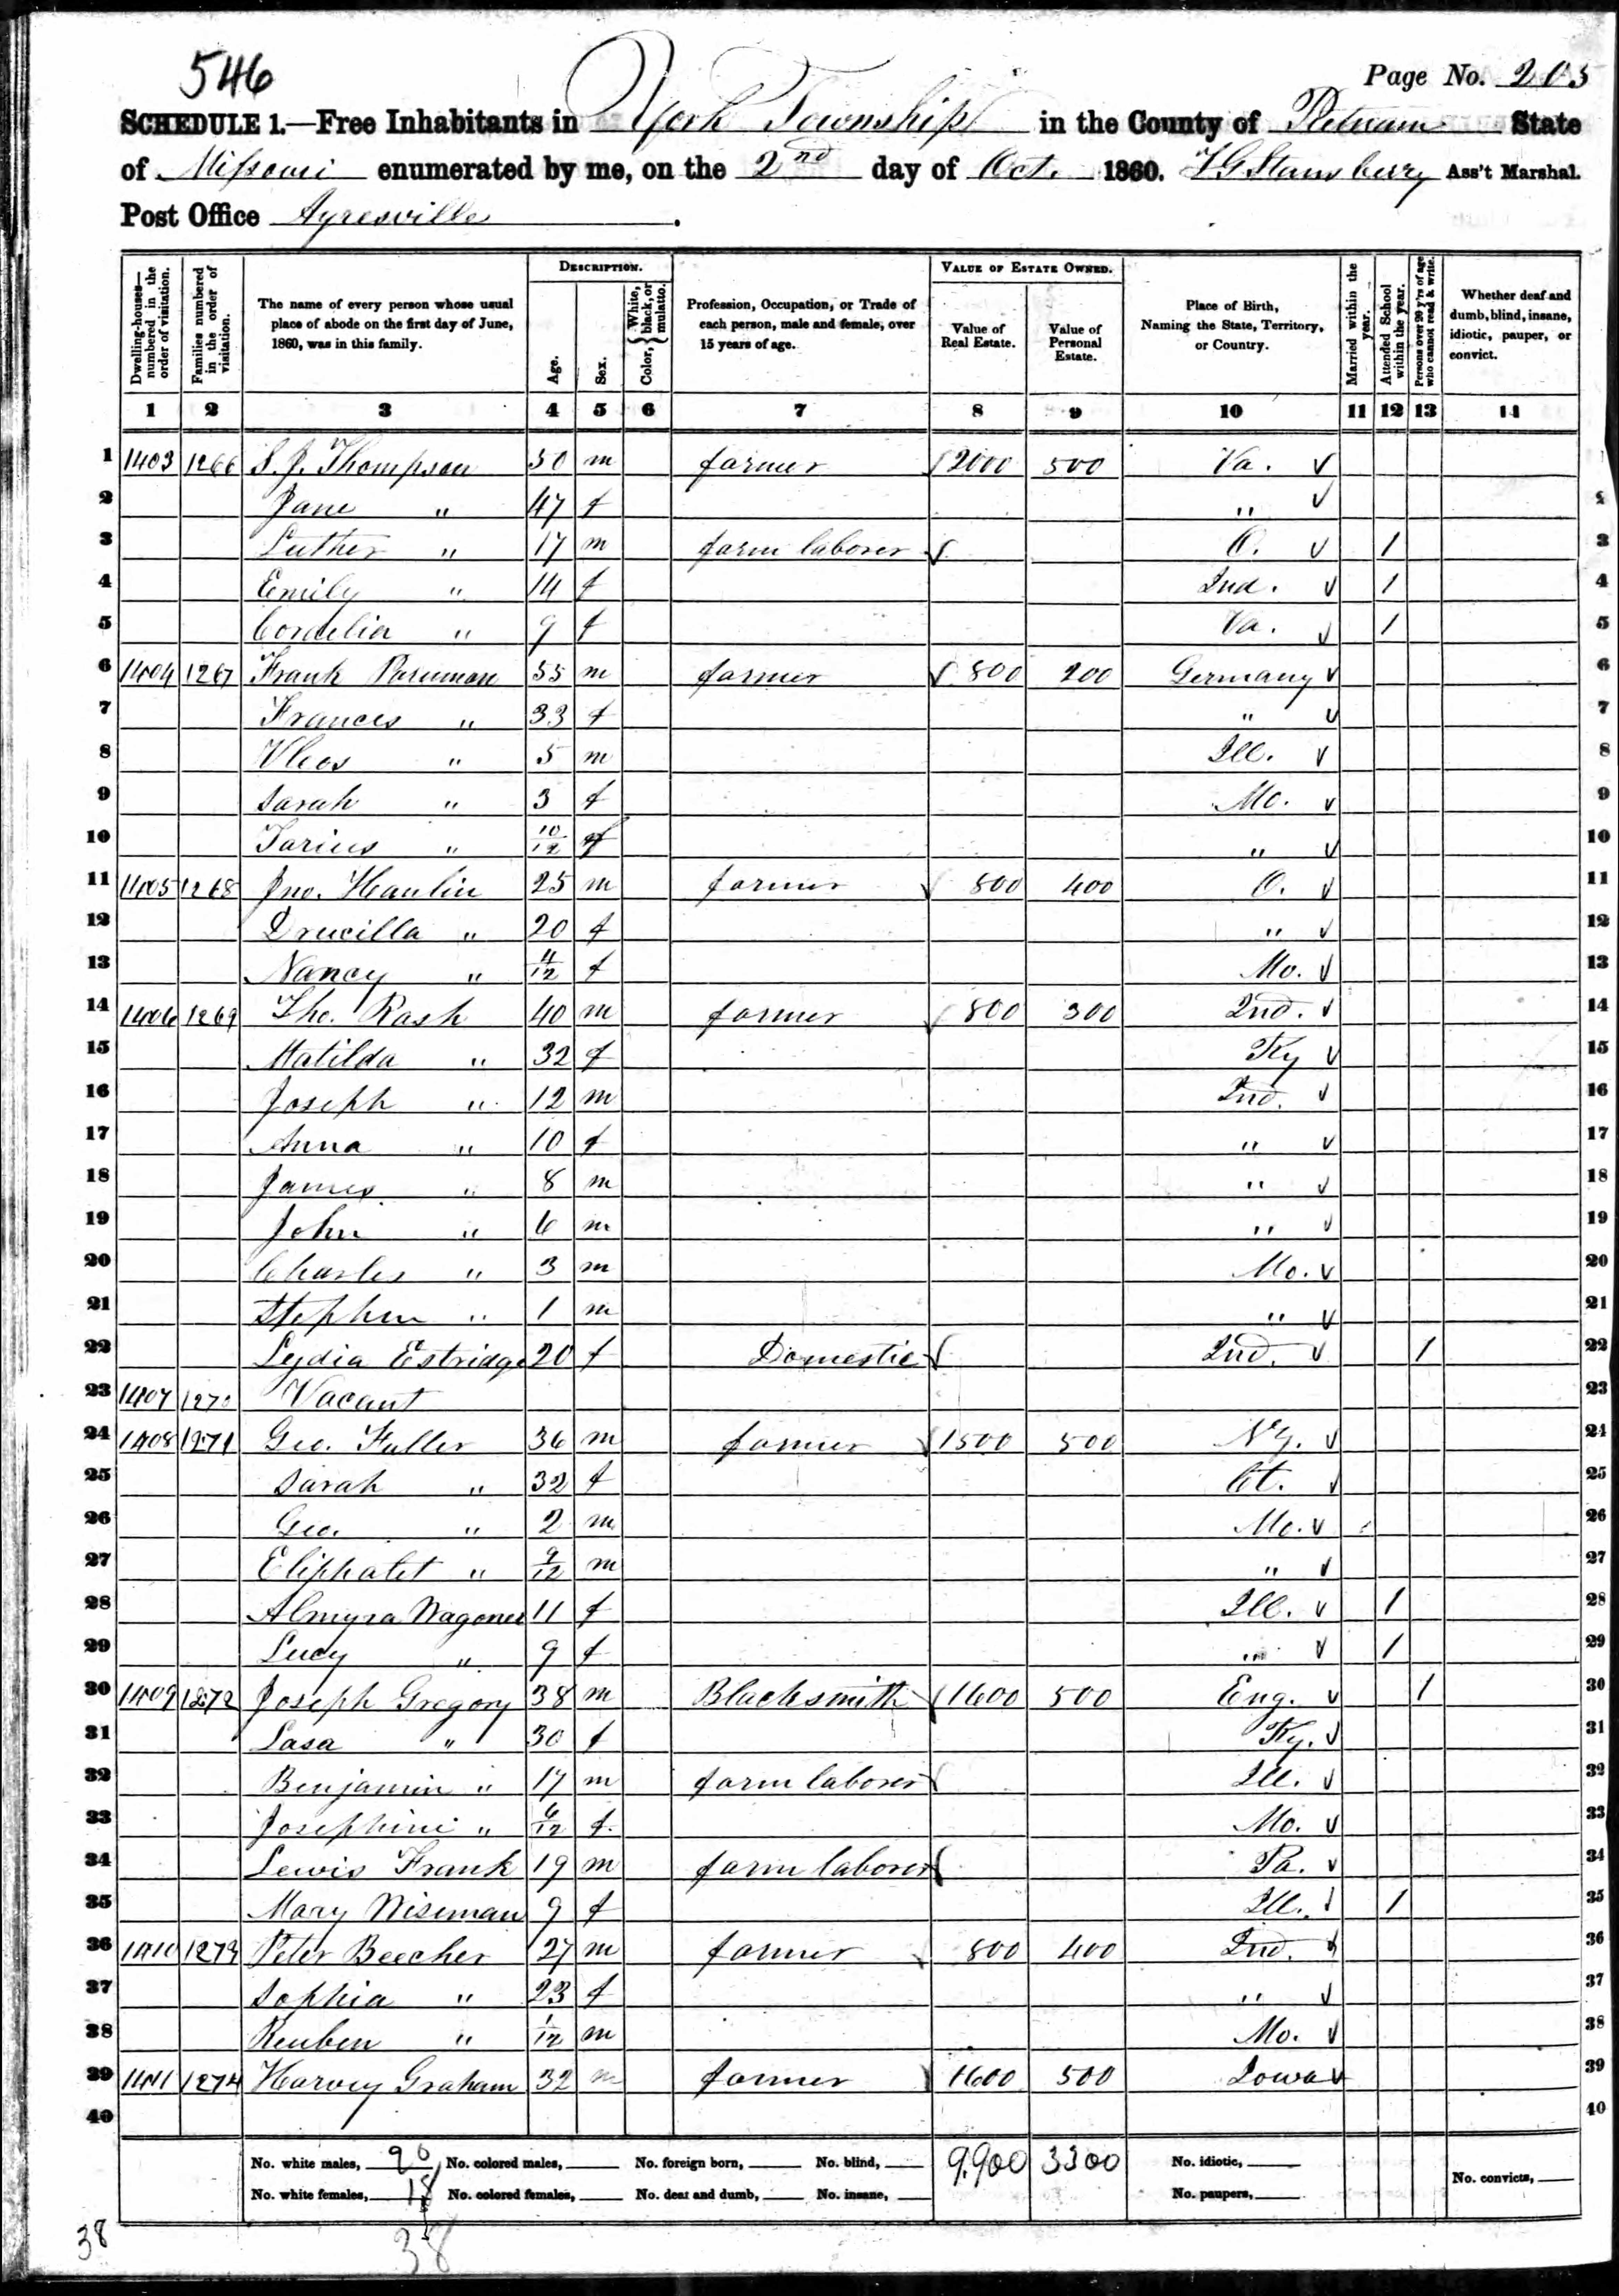 546
Page No. 205
SCHEDULE 1.—Free Inhabitants in York Township in the County of Putnam State
of Missouri enumerated by me, on the 2nd day of Oct. 1860. T G Stansberry Ass't Marshal.
Post Office Ayresville.
Dwelling-houses—numbered in the order of visitation.
Families numbered in the order of visitation.
The name of every person whose usual place of abode on the first day of June, 1860, was in this family.
DESCRIPTION.
Age.
Sex.
Color, { White, black, or mulatto. }
Profession, Occupation, or Trade of each person, male and female, over 15 years of age.
VALUE OF ESTATE OWNED.
Value of Real Estate.
Value of Personal Estate.
Place of Birth, Naming the State, Territory, or Country.
Married within the year.
Attended School within the year.
Persons over 20 y'rs of age who cannot read & write.
Whether deaf and dumb, blind, insane, idiotic, pauper, or convict.
1 2 3 4 5 6 7 8 9 10 11 12 13 14
1 1403 1266 S. J. Thompson 50 m farmer 2000 500 Va.
2 Jane " 47 f " 2
3 Luther " 17 m farm laborer O. 1 3
4 Emily " 14 f Ind. 1 4
5 Cordelia " 9 f Va. 1 5
6 1404 1267 Frank 55 m farmer 800 200 Germany 6
7 Frances " 33 f " 7
8 " 5 m Ill. 8
9 Sarah " 3 f Mo. 9
10 " 10/12 f " 10
11 1405 1268 Jno. Hanlin 25 m farmer 800 400 O. 11
12 Drucilla " 20 f " 12
13 Nancy " 4/12 f Mo. 13
14 1406 1269 Tho. Rash 40 m farmer 800 300 Ind. 14
15 Matilda " 32 f Ky 15
16 Joseph " 12 m Ind. 16
17 Anna " 10 f " 17
18 James " 8 m " 18
19 John " 6 m " 19
20 Charles " 3 m Mo. 20
21 Stephen " 1 m " 21
22 Lydia Estridge 20 f Domestic Ind. 1 22
23 1407 1270 Vacant 23
24 1408 1271 Geo. Fuller 36 m farmer 1500 500 N.Y. 24
25 Sarah " 32 f Ct. 25
26 Geo. " 2 m Mo. 26
27 Eliphalet " 9/12 m " 27
28 Almyra Wagoner 11 f Ill. 1 28
29 Lucy " 9 f " 1 29
30 1409 1272 Joseph Gregory 38 m Blacksmith 1600 500 Eng. 1 30
31 Lasa " 30 f Ky. 31
32 Benjamin " 17 m farm laborer Ill. 32
33 Josephine " 6/12 f. Mo. 33
34 Lewis Frank 19 m farm laborer Pa. 34
35 Mary Wiseman 9 f Ill. 1 35
36 1410 1273 Peter Beecher 27 m farmer 800 400 Ind. 36
37 Sophia " 23 f " 37
38 Reuben " 1/12 m Mo. 38
39 1411 1274 Harvey Graham 32 m farmer 1600 500 Iowa 39
40 40
No. white males, 20 No. colored males, No. foreign born, No. blind, 9,900 3300 No. idiotic,
No. white females, 18 No. colored females, No. deaf and dumb, No. insane, No. paupers, No. convicts,
38
38